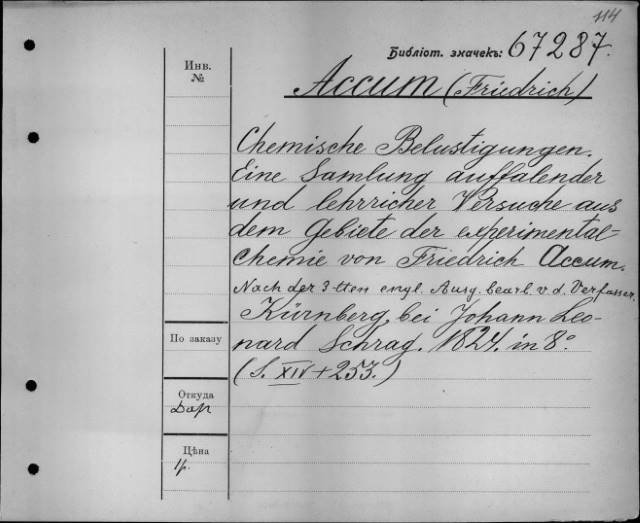 114
Библіот. значекъ: 67287.
Инв.
№
Accum (Friedrich)
Chemische Belustigungen.
Eine Samlung auffalender
und lehrricher Versuche aus
dem Gebiete der experimental-
chemie von Friedrich Accum.
Nach der 3-tten engl. Ausg. bearb. v. d. Verfasser.
Kürnberg, bei Johann Leo-
nard Schrag. 1824. in 8°
(S. XIV + 253.)
По заказу
Откуда
Дар
Цѣна
1 р.